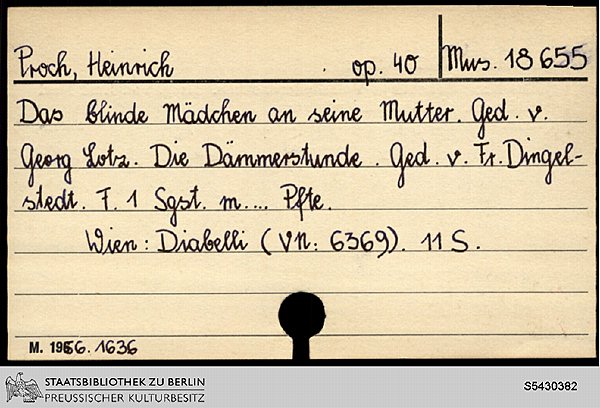 Proch, Heinrich op. 40 Mus. 18 655
Das blinde Mädchen an seine Mutter. Ged. v.
Georg Lotz. Die Dämmerstunde. Ged. v. Fr. Dingel-
stedt. F. 1 Sgst. m.... Pfte.
Wien: Diabelli (VN: 6369). 11 S.
M. 1956. 1636
STAATSBIBLIOTHEK ZU BERLIN
PREUSSISCHER KULTURBESITZ
S5430382